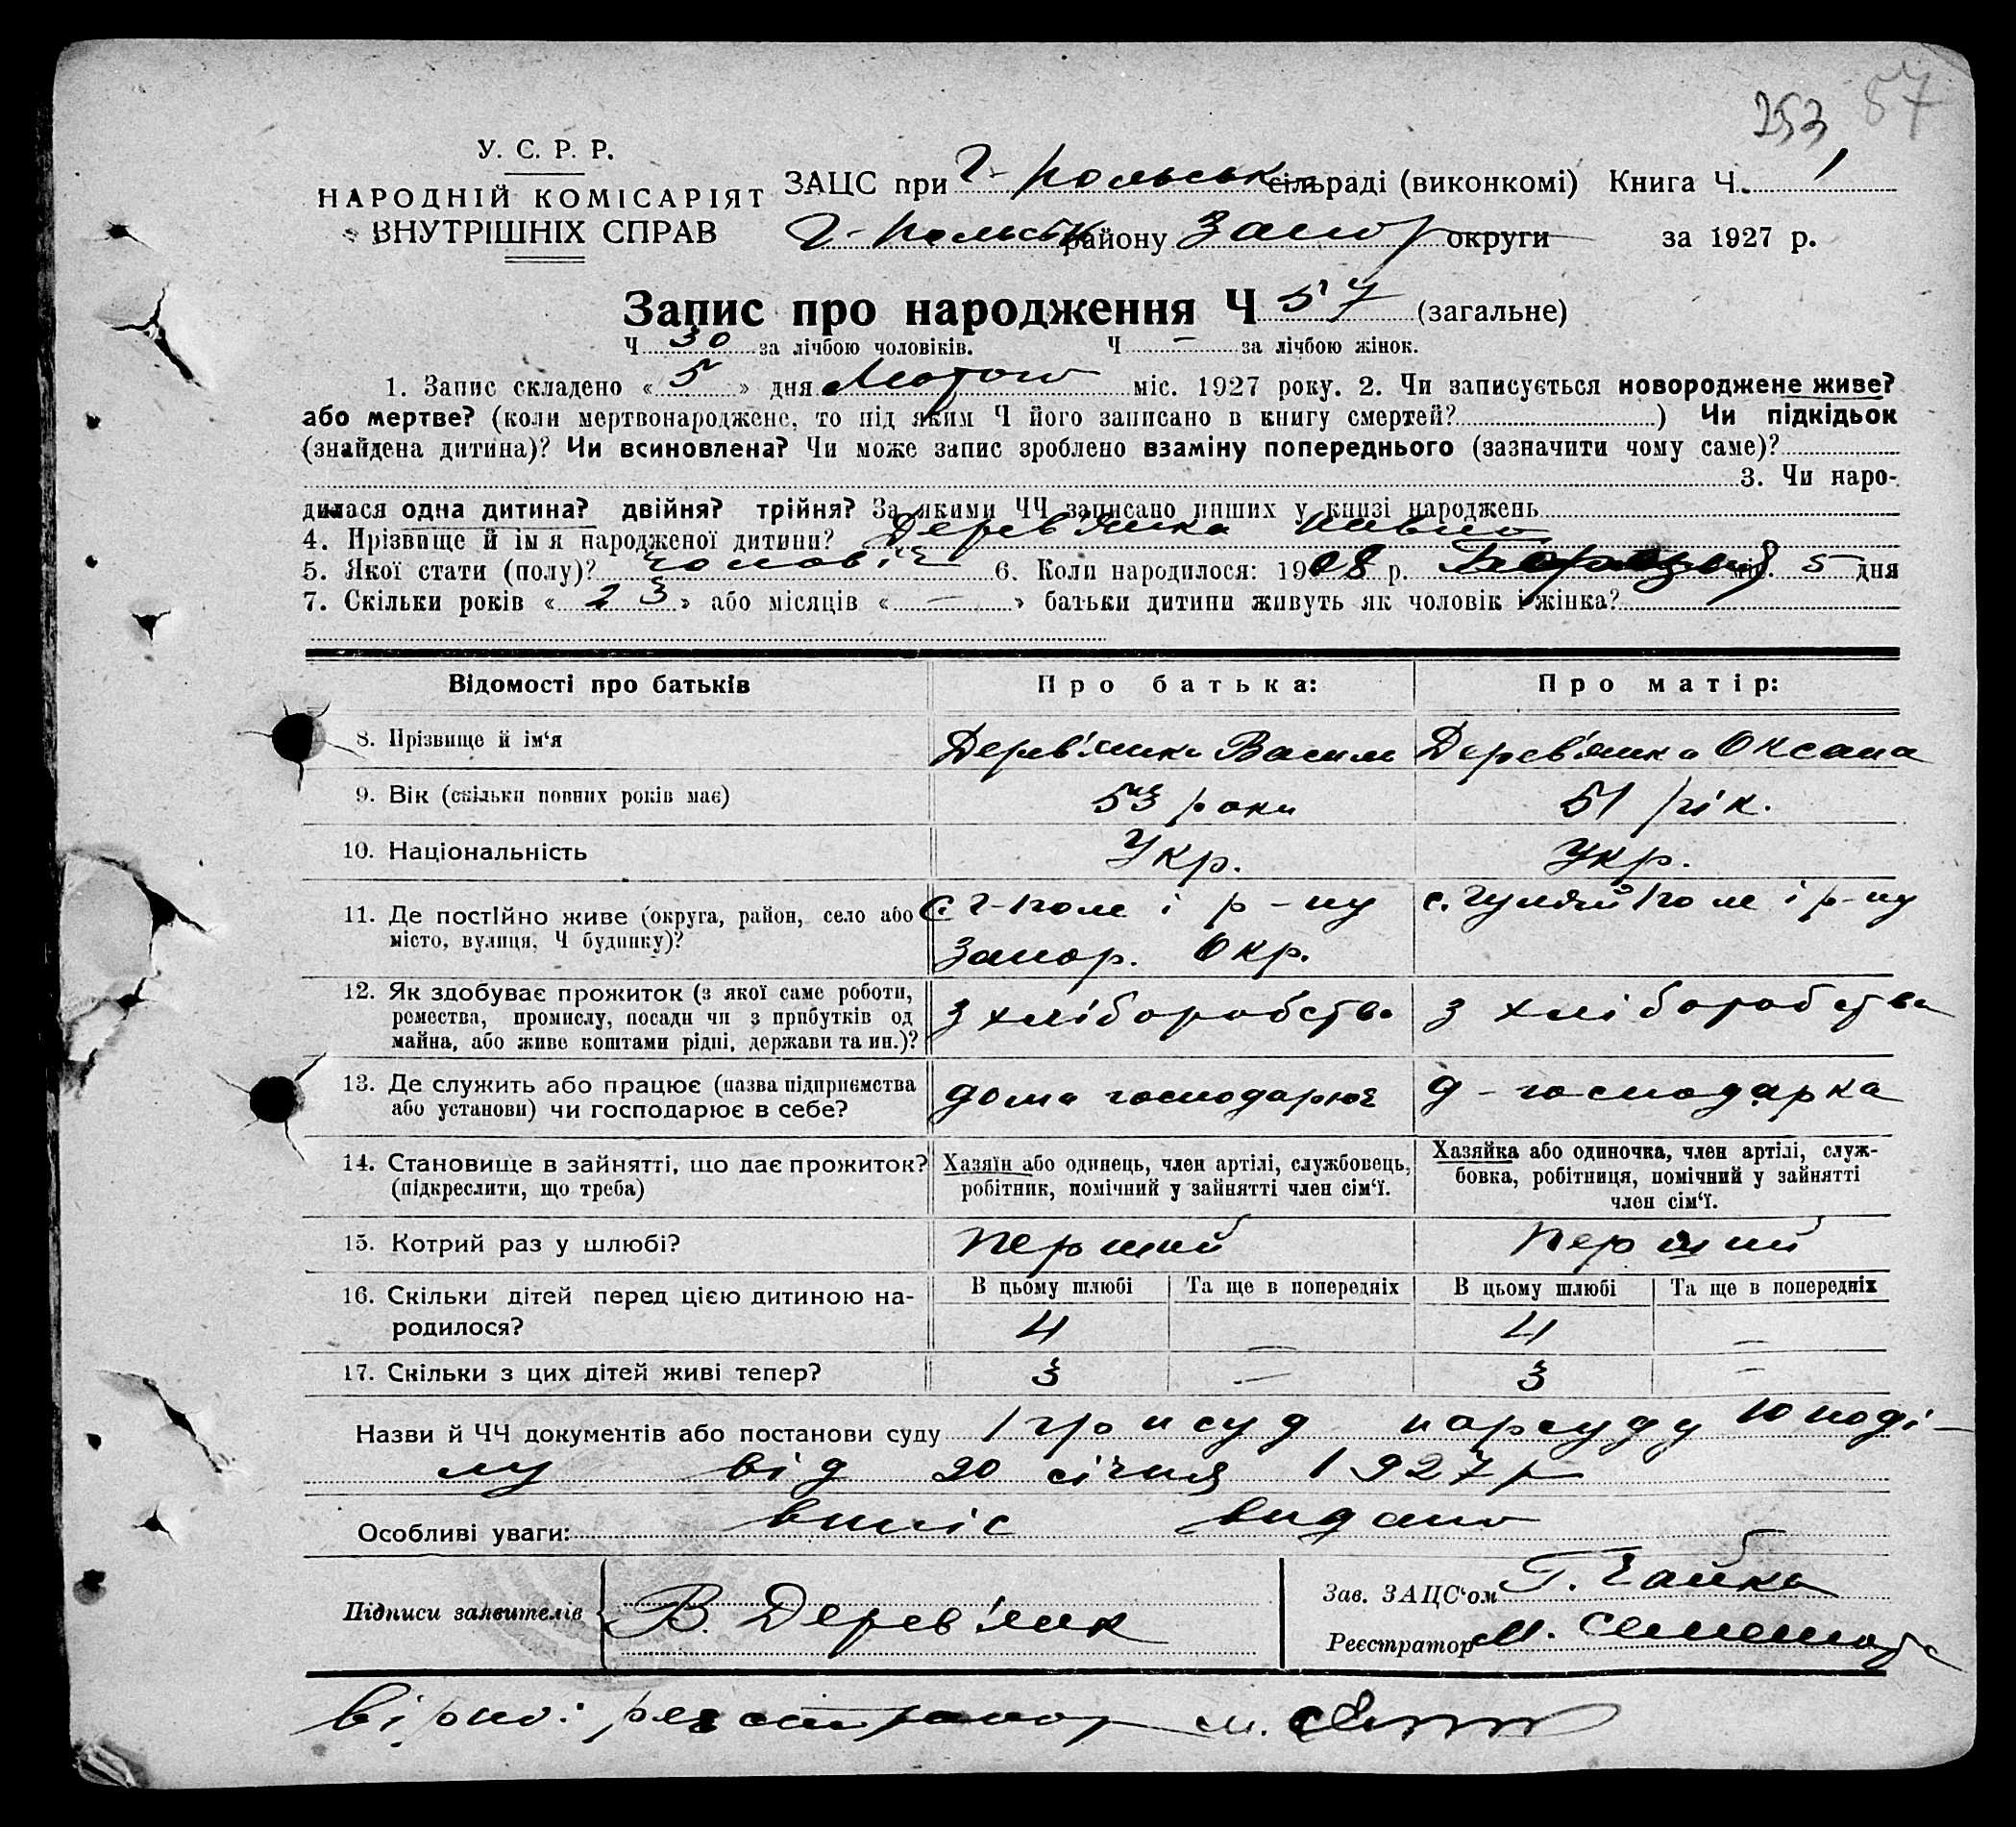 253 57
У. С. Р. Р.
НАРОДНІЙ КОМІСАРІЯТ
ВНУТРІШНІХ СПРАВ
ЗАЦС при Г-Польськ сільраді (виконкомі) Книга Ч. 1
Г-Польськ району Запор округи за 1927 р.
Запис про народження Ч 57 (загальне)
Ч 30 за лічбою чоловіків. Ч — за лічбою жінок.
1. Запис складено «5» дня Лютого міс. 1927 року. 2. Чи записується новороджене живе?
або мертве? (коли мертвонароджене, то під яким Ч його записано в книгу смертей? ) Чи підкідьок
(знайдена дитина)? Чи всиновлена? Чи може запис зроблено взаміну попереднього (зазначити чому саме)?
3. Чи наро-
дилася одна дитина? двійня? трійня? За якими ЧЧ записано инших у книзі народжень
4. Прізвище й ім'я народженої дитини? Дерев'янко
5. Якої стати (полу)? чоловіч 6. Коли народилося: 1908 р. міс. 5 дня
7. Скільки років «23» або місяців «—» батьки дитини живуть як чоловік і жінка?
Відомості про батьків Про батька: Про матір:
8. Прізвище й ім'я Дерев'янко Василь Дерев'янко Оксана
9. Вік (скільки повних років має) 53 роки 51 рік.
10. Національність Укр. Укр.
11. Де постійно живе (округа, район, село або с. Г-Поле і р-ну с. Гуляй Поле і р-ну
місто, вулиця, Ч будинку)? Запор. Окр.
12. Як здобуває прожиток (з якої саме роботи,
ремества, промислу, посади чи з прибутків од з хліборобства з хліборобства
майна, або живе коштами рідні, держави та ин.)?
13. Де служить або працює (назва підприємства дома господарює д-господарка
або установи) чи господарює в себе?
14. Становище в зайнятті, що дає прожиток? Хазяїн або одинець, член артілі, службовець, Хазяйка або одиночка, член артілі, служ-
(підкреслити, що треба) робітник, помічний у зайнятті член сім'ї. бовка, робітниця, помічний у зайнятті
член сім'ї.
15. Котрий раз у шлюбі? перший перший
16. Скільки дітей перед цією дитиною на- В цьому шлюбі Та ще в попередніх В цьому шлюбі Та ще в попередніх
родилося? 4 — 4 —
17. Скільки з цих дітей живі тепер? 3 — 3 —
Назви й ЧЧ документів або постанови суду Присуд нарсуду 10 поді-
лу від 20 січня 1927 р
Особливі уваги: випис видано
Підписи заявителів В. Дерев'янк
Зав. ЗАЦС'ом Г. Чайка
Реєстратор М.
вірно: реєстратор М.